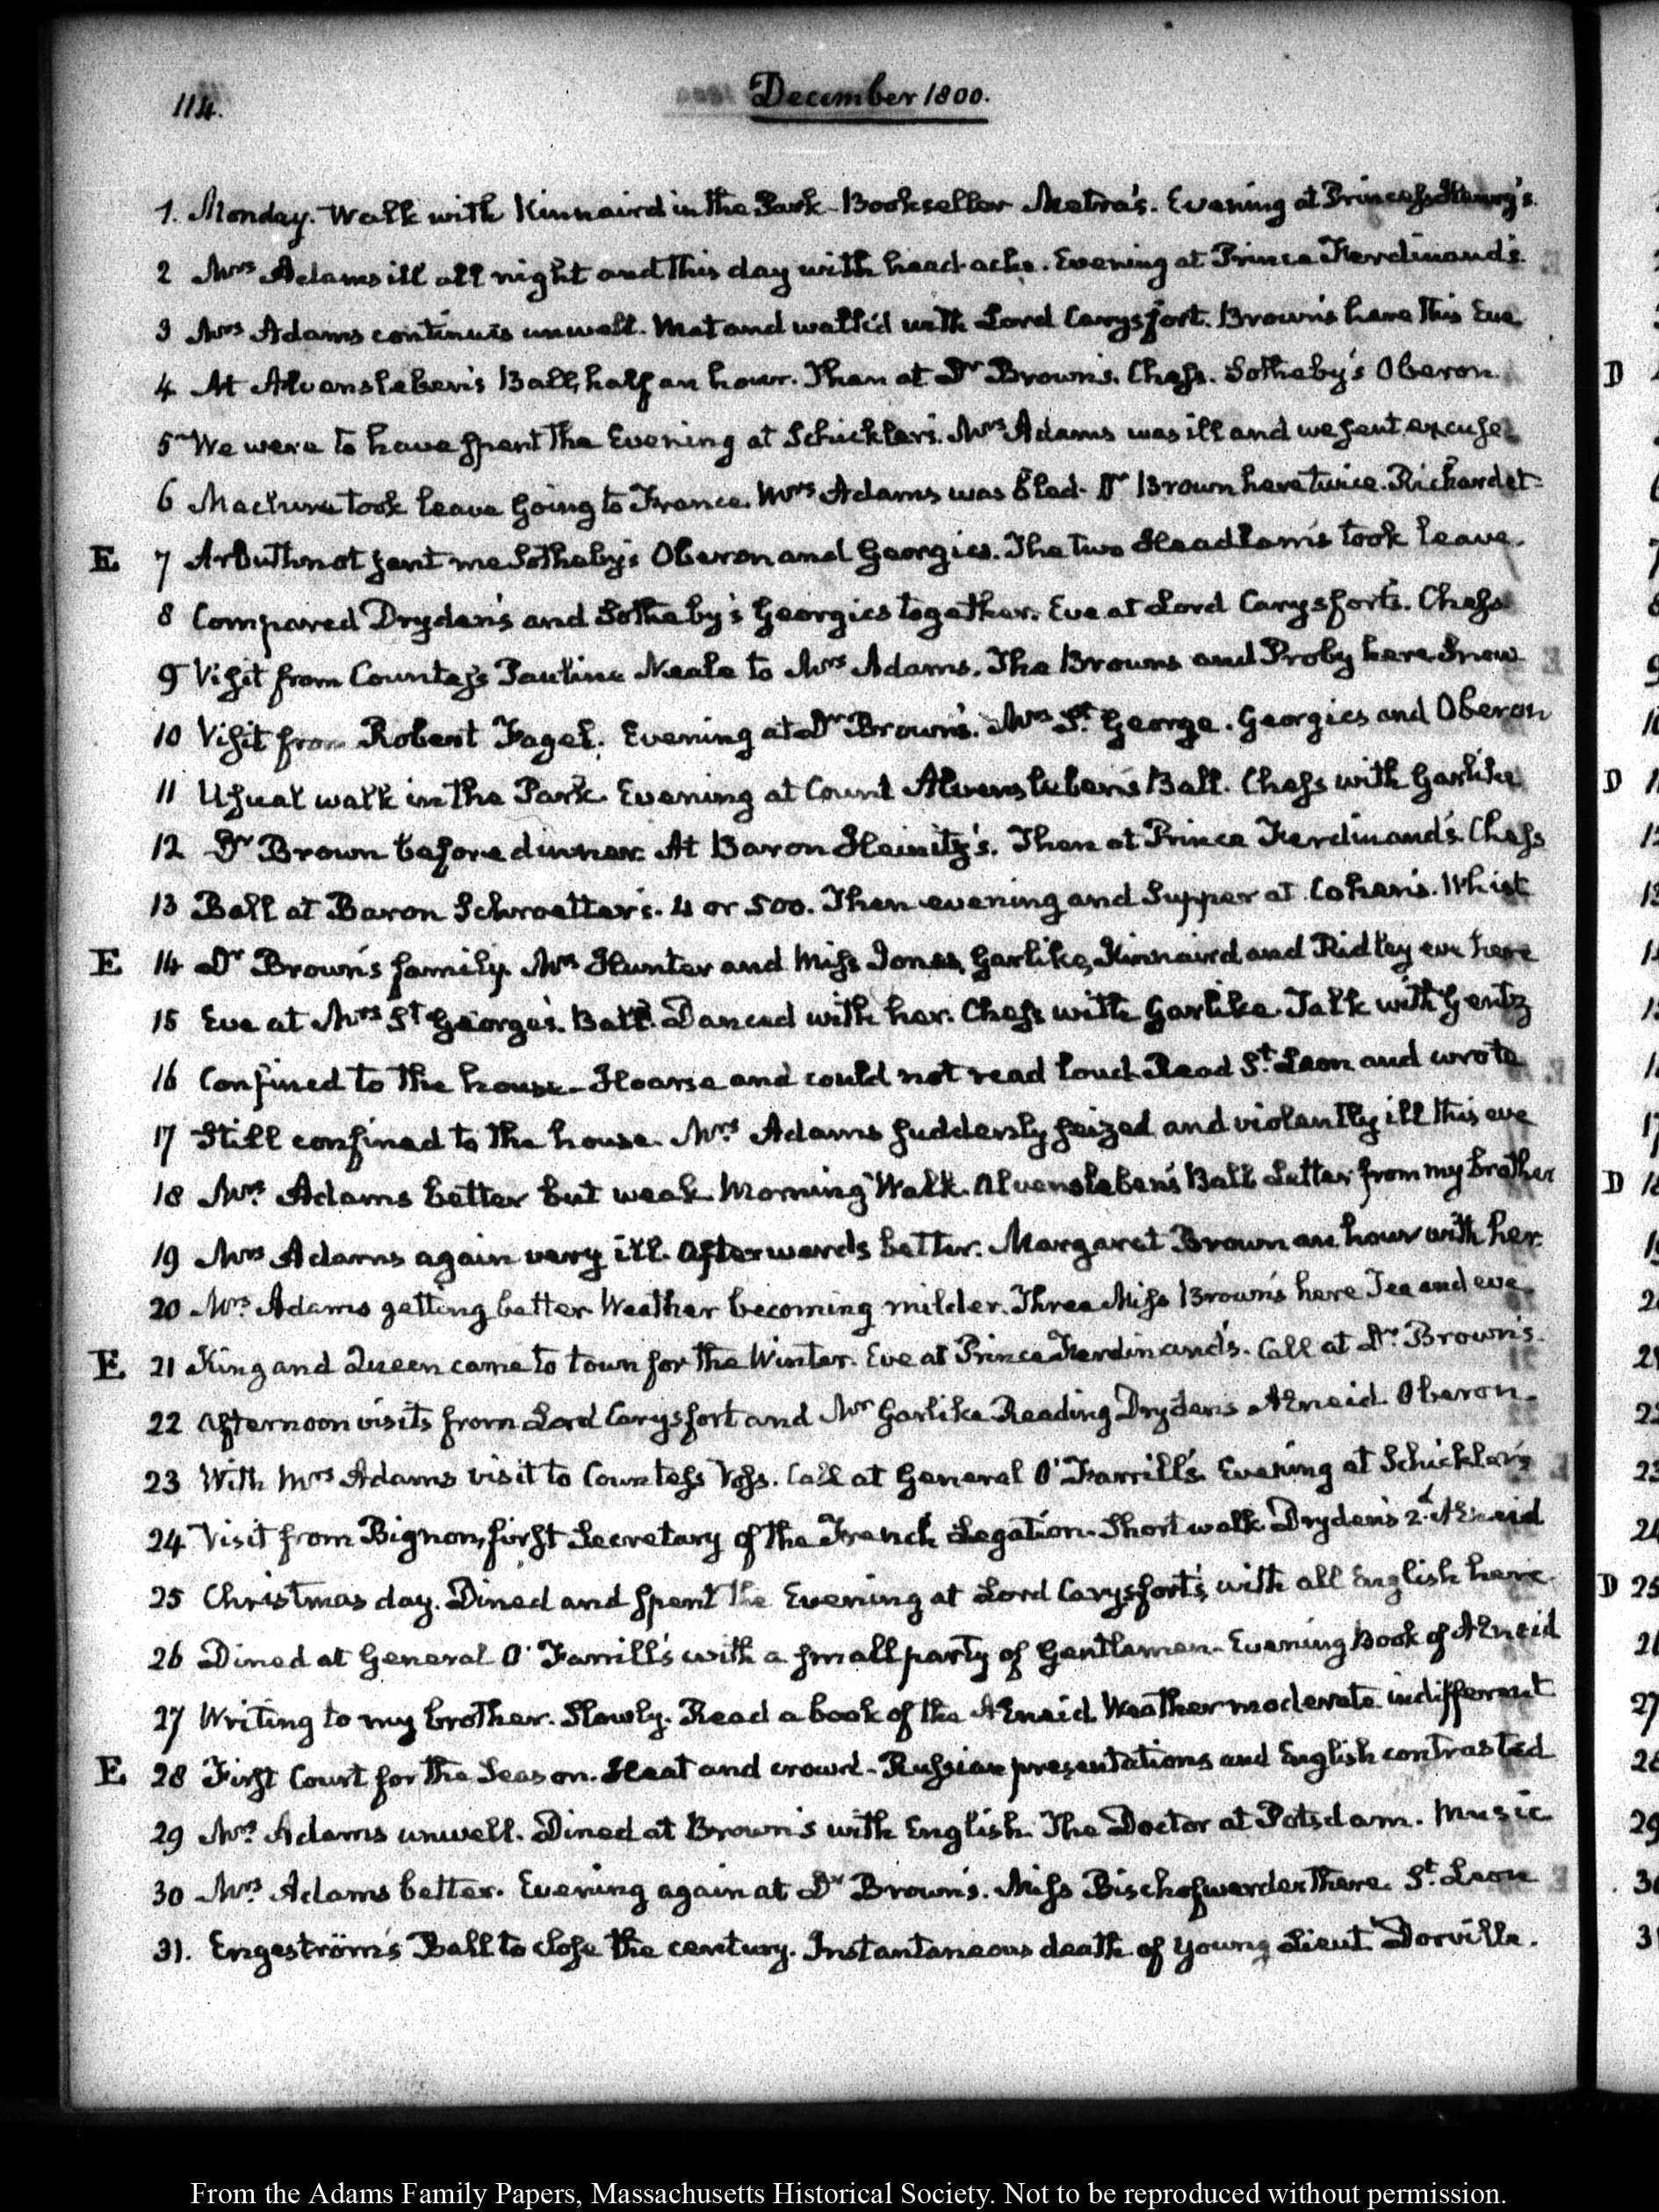 114.
December 1800.
1. Monday. Walk with Kinnaird in the Park. Bookseller Metra's. Evening at Princess Henry's.
2 Mrs Adams ill all night and this day with head-ache. Evening at Prince Ferdinand's.
3 Mrs Adams continues unwell. Met and walk'd with Lord Carysfort. Brown's here this Eve.
4 At Alvensleben's Ball, half an hour. Then at Dr Brown's. Chess. Sotheby's Oberon.
5 We were to have spent the Evening at Schickler's. Mrs Adams was ill and we sent excuse
6 Maclure took leave going to France. Mrs Adams was bled. Dr Brown here twice. Rickardet
E 7 Arbuthnot sent me Sotheby's Oberon and Georgics. The two Headlam's took leave.
8 Compared Dryden's and Sotheby's Georgics together. Eve at Lord Carysfort's. Chess
9 Visit from Countess Pauline Neale to Mrs Adams. The Browns and Proby here Snow
10 Visit from Robert Fagel. Evening at Dr Brown's. Mrs St. George. Georgics and Oberon
11 Usual walk in the Park. Evening at Count Alvensleben's Ball. Chess with Garlike
12 Dr Brown before dinner. At Baron Heinitz's. Then at Prince Ferdinand's. Chess
13 Ball at Baron Schroetter's. 4 or 500. Then evening and Supper at Cohen's. Whist
E 14 Dr Brown's family. Mrs Hunter and Miss Jones, Garlike, Kinnaird and Ridley eve here
15 Eve at Mrs St George's. Ball. Danced with her. Chess with Garlike. Talk with Gentz
16 Confined to the house. Hoarse and could not read loud. Read St. Leon and wrote
17 Still confined to the house. Mrs. Adams suddenly seized and violently ill this eve
18 Mrs. Adams better but weak. Morning Walk. Alvensleben's Ball Letter from my brother
19 Mrs Adams again very ill. Afterwards better. Margaret Brown an hour with her.
20 Mrs. Adams getting better Weather becoming milder. Three Miss Brown's here Tea and eve
E 21 King and Queen came to town for the Winter. Eve at Prince Ferdinand's. Call at Dr. Brown's.
22 Afternoon visits from Lord Carysfort and Mr Garlike Reading Dryden's AEneid. Oberon.
23 With Mrs Adams visit to Countess Voss. Call at General O'Farrill's. Evening at Schickler's
24 Visit from Bignon, first Secretary of the French Legation. Short walk. Dryden's 2.d AEneid
25 Christmas day. Dined and spent the Evening at Lord Carysfort's, with all English here
26 Dined at General O'Farrill's with a small party of Gentlemen. Evening Book of AEneid
27 Writing to my brother. Slowly. Read a book of the AEneid. Weather moderate indifferent
E 28 First Court for the Season. Heat and crowd. Russian presentations and English contrasted
29 Mrs. Adams unwell. Dined at Brown's with English. The Doctor at Potsdam. Music
30 Mrs. Adams better. Evening again at Dr Brown's. Miss Bischofwerder there. St. Leon
31. Engeström's Ball to close the century. Instantaneous death of young Lieut. Dorville.
From the Adams Family Papers, Massachusetts Historical Society. Not to be reproduced without permission.